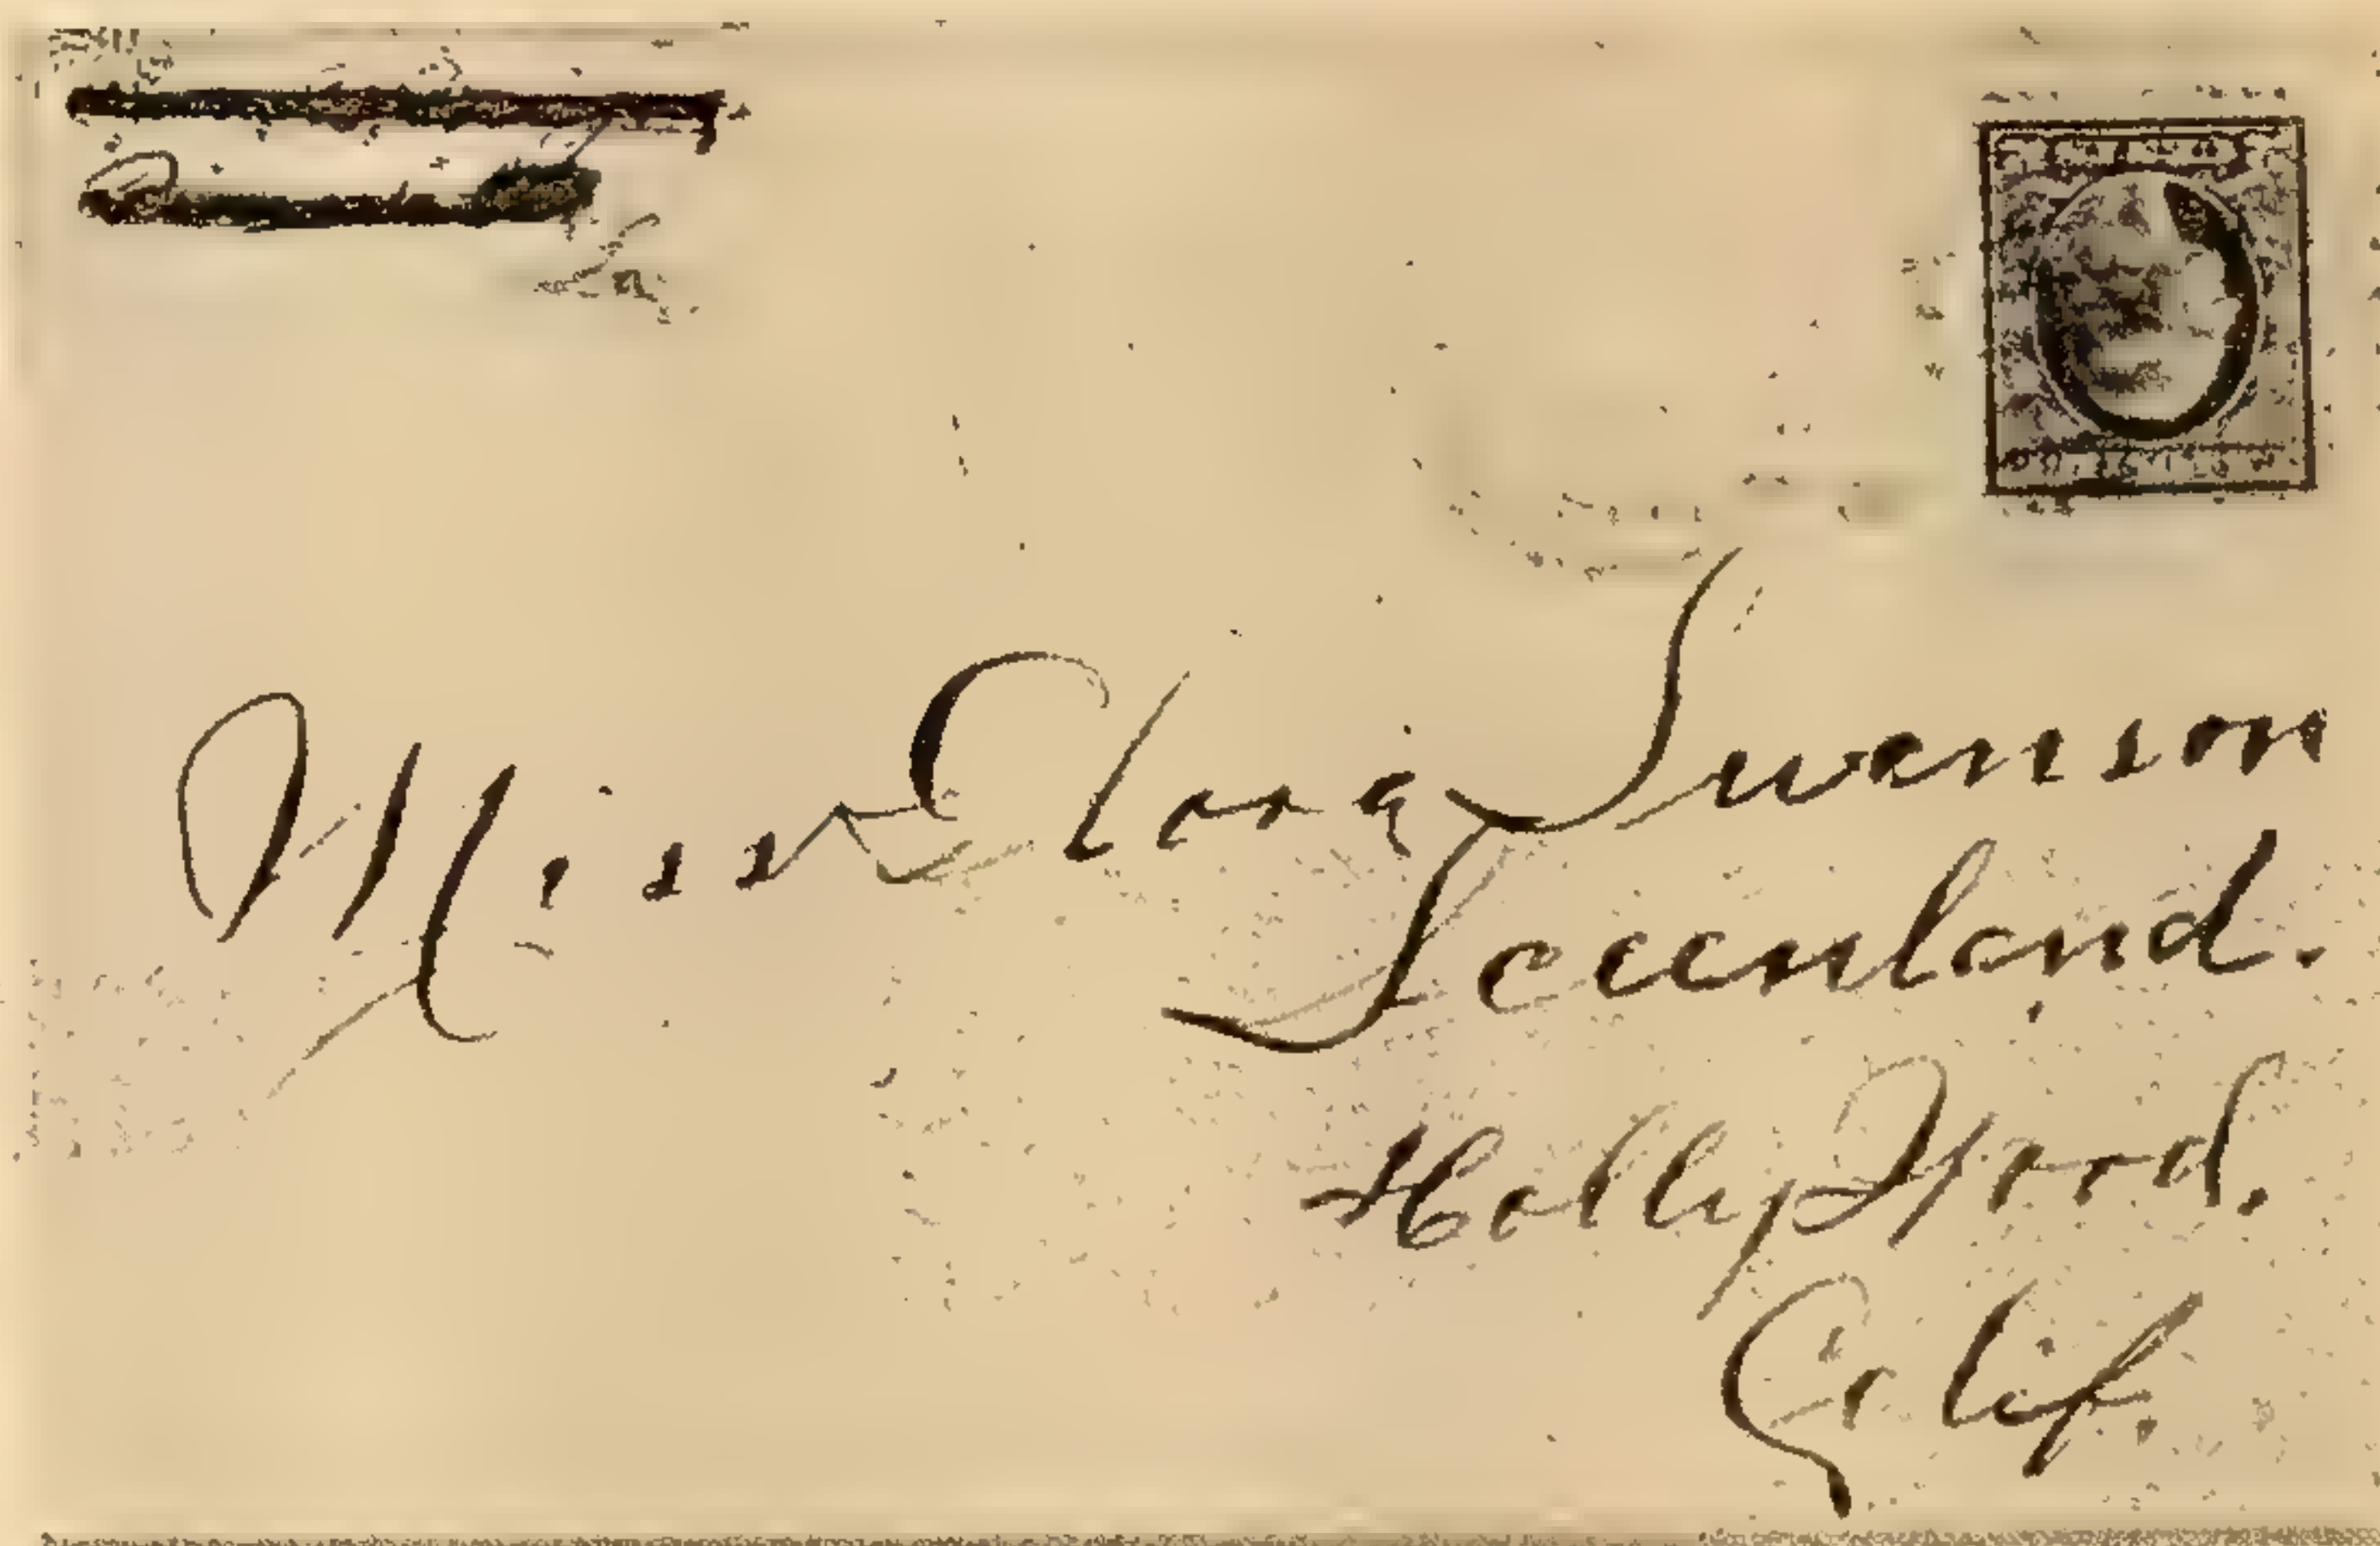 Miss Gloria Swanson
Sceenland.
HollyWood.
Calif.